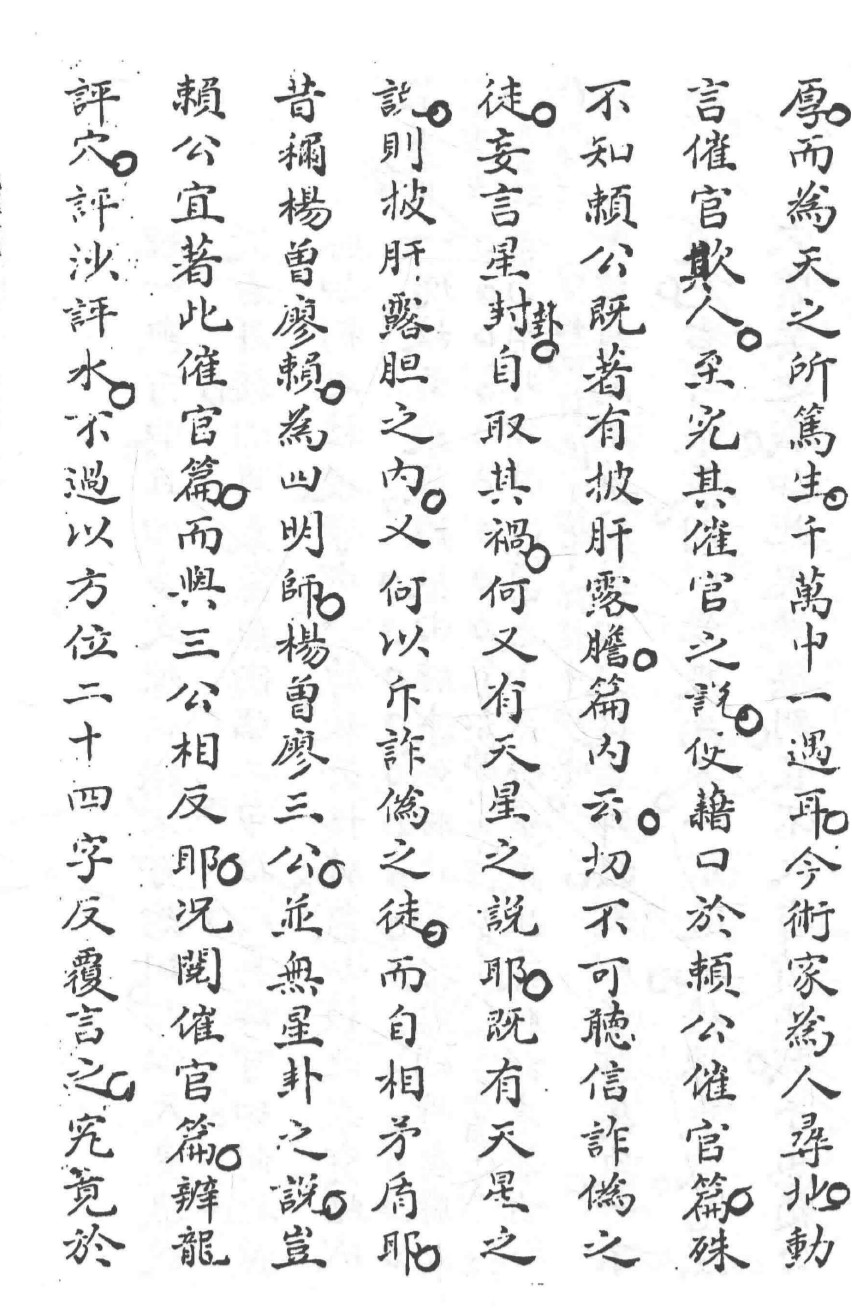 厚。而為天之所篤生。千萬中一遇耳。今術家為人尋地。動
言催官欺人。至究其催官之說。便藉口於賴公催官篇。殊
不知賴公既著有披肝露膽。篇內云。切不可聽信詐偽之
徒。妄言星封卦。自取其禍。何又有天星之說耶。既有天星之
說。則披肝露胆之内。又何以斥詐偽之徒。而自相矛盾耶。
昔稱楊曾廖賴。為四明師。楊曾廖三公。並無星卦之說。豈
賴公宜著此催官篇。而與三公相反耶。况閱催官篇。辨龍
評穴。評沙評水。不過以方位二十四字反覆言之。究竟於